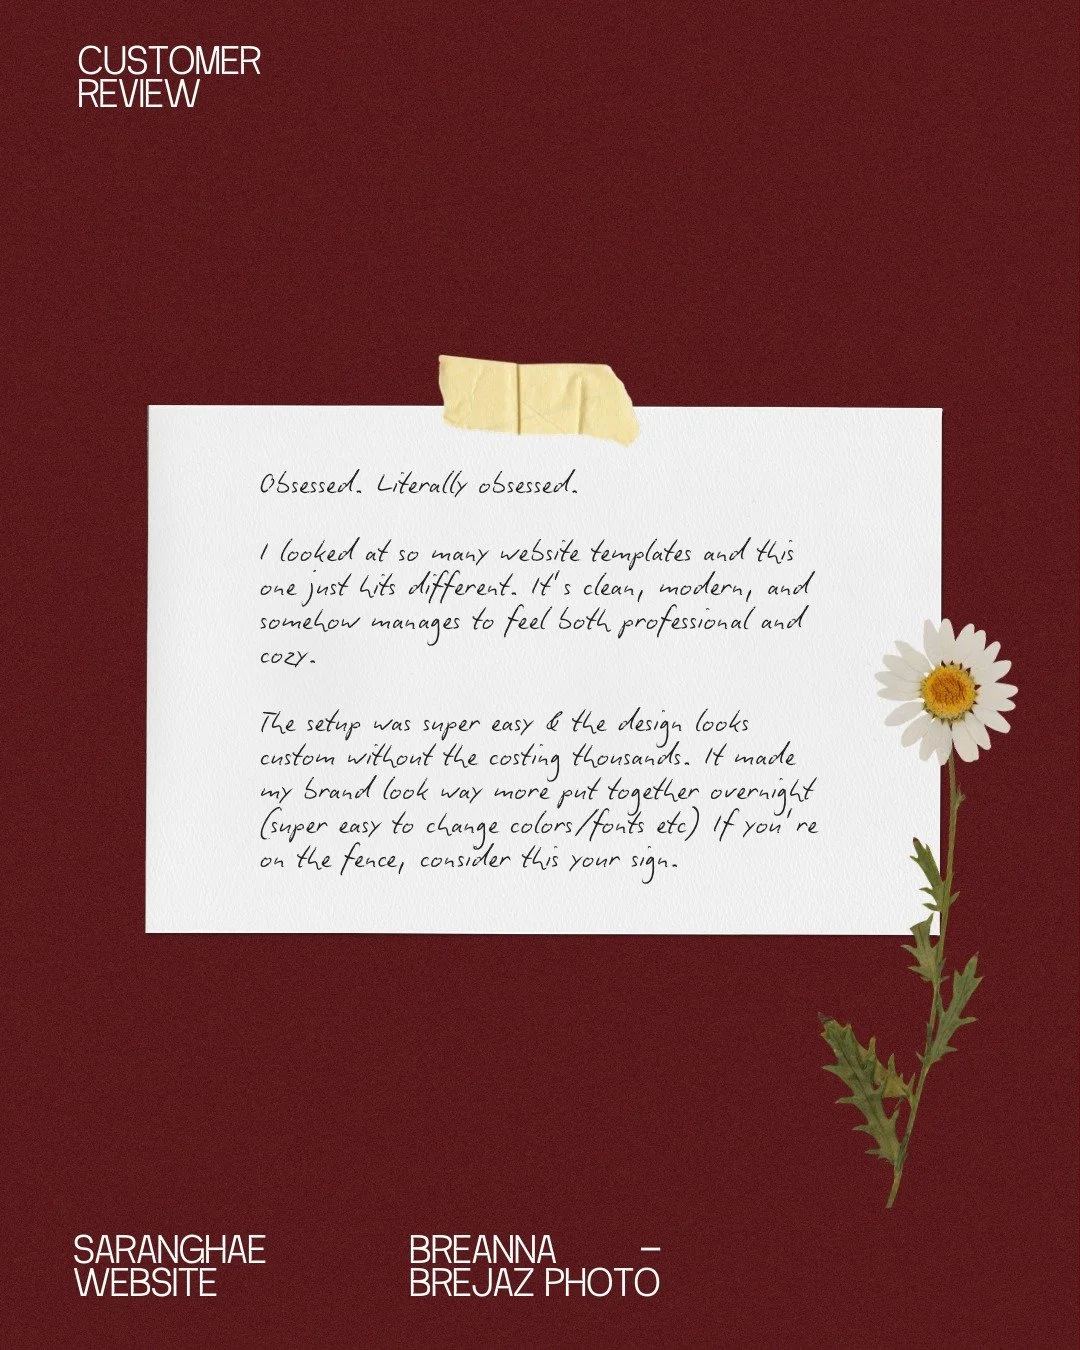 CUSTOMER
REVIEW
Obsessed. Literally obsessed.
I looked at so many website templates and this
one just hits different. It's clean, modern, and
somehow manages to feel both professional and
cozy.
The setup was super easy & the design looks
custom without the costing thousands. It made
my brand look way more put together overnight
(super easy to change colors/fonts etc) If you're
on the fence, consider this your sign.
SARANGHAE
WEBSITE
BREANNA –
BREJAZ PHOTO